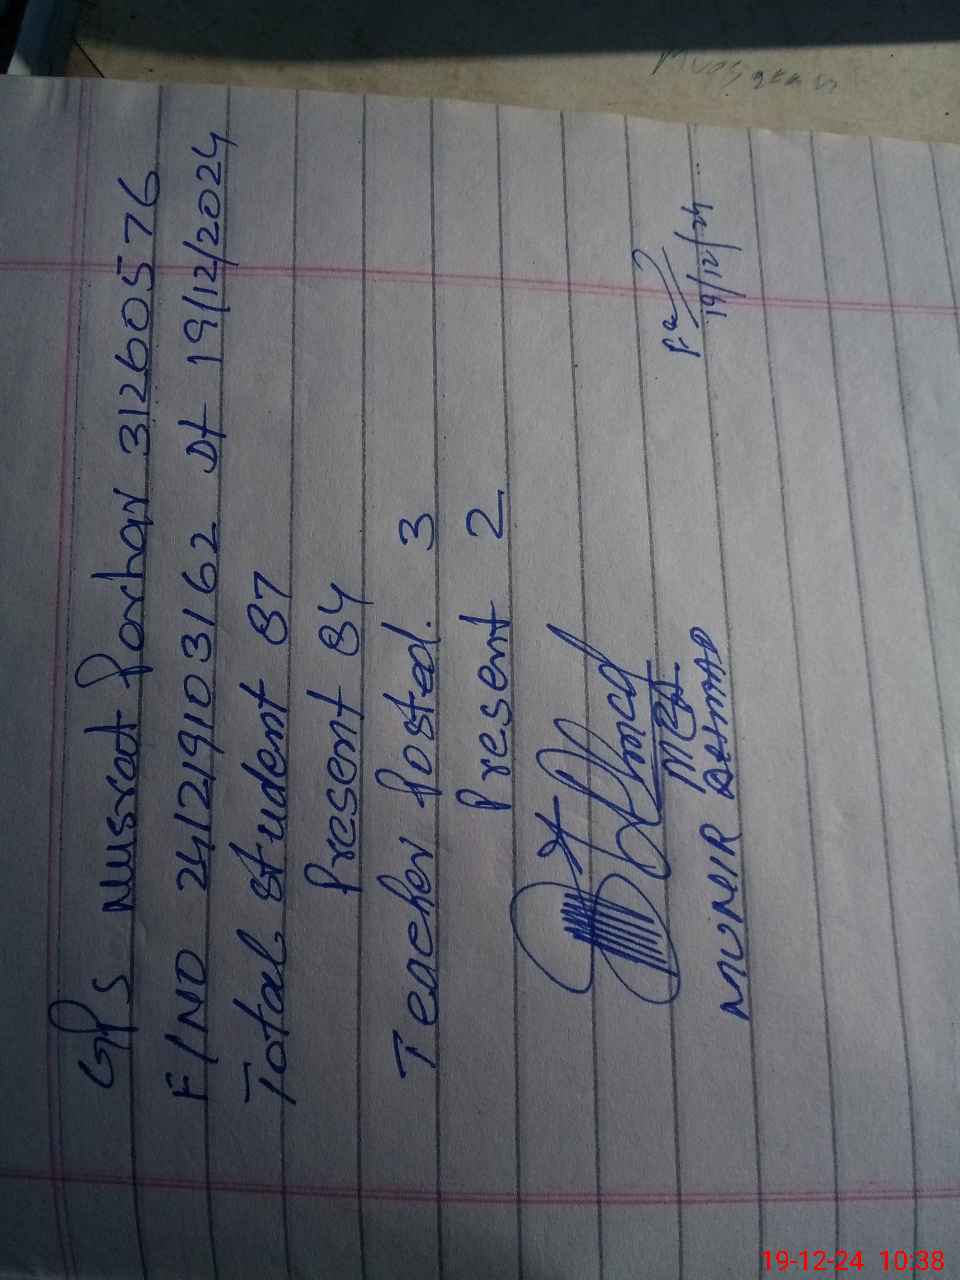 GPS Nusrat Porhar 31260576
F/NO 241219103162 Dt 19/12/2024
Total student 87
Present 84
Teacher Posted. 3
Present 2
Ahmad
MEA
MUNOIR AHMAD
19/12/24
19-12-24 10:38